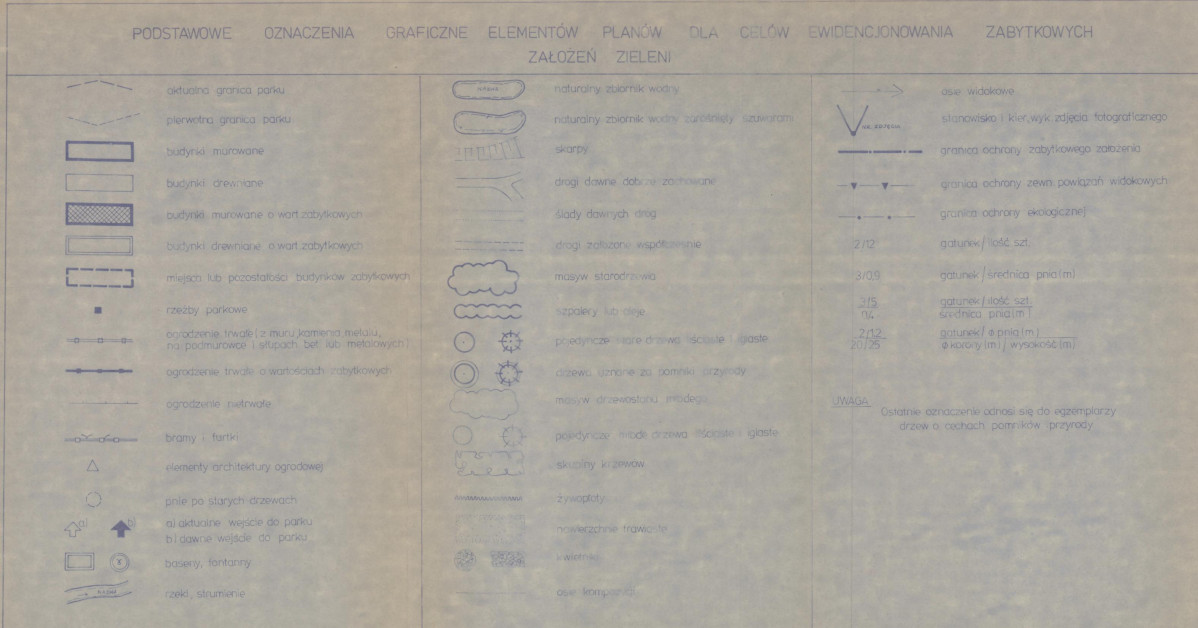 PODSTAWOWE OZNACZENIA GRAFICZNE ELEMENTÓW PLANÓW DLA CELÓW EWIDENCJONOWANIA ZABYTKOWYCH
ZAŁOŻEŃ ZIELENI
aktualna granica parku
pierwotna granica parku
budynki murowane
budynki drewniane
budynki murowane o wart. zabytkowych
budynki drewniane o wart. zabytkowych
miejsca lub pozostałości budynków zabytkowych
rzeźby parkowe
ogrodzenie trwałe (z muru, kamienia, metalu,
na podmurówce i słupach bet. lub metalowych)
ogrodzenie trwałe o wartościach zabytkowych
ogrodzenie nietrwałe
bramy i furtki
elementy architektury ogrodowej
pnie po starych drzewach
a) b)
a) aktualne wejście do parku
b) dawne wejście do parku
baseny, fontanny
rzeki, strumienie
naturalny zbiornik wodny
naturalny zbiornik wodny zarośnięty szuwarami
skarpy
drogi dawne dobrze zachowane
ślady dawnych dróg
drogi założone współcześnie
masyw starodrzewia
szpalery lub aleje
pojedyncze stare drzewa liściaste i iglaste
drzewa uznane za pomniki przyrody
masyw drzewostanu młodego
pojedyncze młode drzewa liściaste i iglaste
skupiny krzewów
żywopłoty
nawierzchnie trawiaste
kwietniki
osie kompozycji
osie widokowe
stanowisko i kier. wyk. zdjęcia fotograficznego
granica ochrony zabytkowego założenia
granica ochrony zewn. powiązań widokowych
granica ochrony ekologicznej
2/12 gatunek / ilość szt.
3/0,9 gatunek / średnica pnia (m)
3/5 gatunek / ilość szt.
0,4 średnica pnia (m)
2/1,2 gatunek / ø pnia (m)
20/25 ø korony (m) / wysokość (m)
UWAGA
Ostatnie oznaczenie odnosi się do egzemplarzy
drzew o cechach pomników przyrody